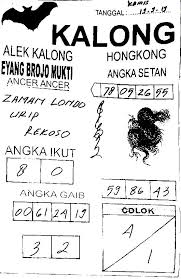 KAMIS
TANGGAL : 19-9-19
KALONG
ALEK KALONG
HONGKONG
EYANG BROJO MUKTI
ANGKA SETAN
ANCER ANCER
78 09 26 55
ZAMAN LONDO
URIP
REKOSO
ANGKA IKUT
8 0
ANGKA GAIB
59 86 43
00 61 24 19
COLOK
4 / 1
3 2